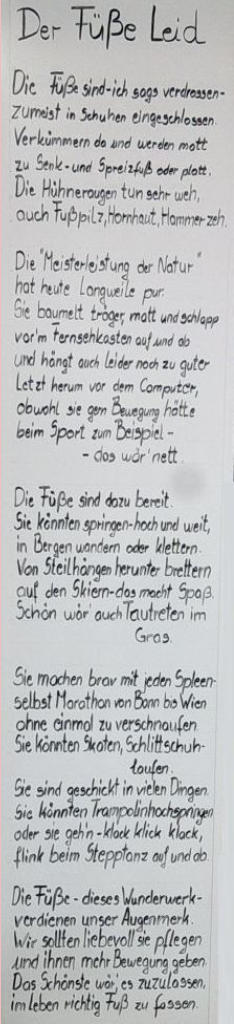 Der Füße Leid
Die Füße sind-ich sags verdrossen-
zumeist in Schuhen eingeschlossen.
Verkümmern da und werden matt
zu Senk-und Spreizfuß oder platt.
Die Hühneraugen tun sehr weh,
auch Fußpilz, Hornhaut, Hammerzeh.
Die "Meisterleistung der Natur"
hat heute Langweile pur.
Sie baumelt träger, matt und schlapp
vor'm Fernsehkasten auf und ab
und hängt auch leider noch zu guter
Letzt herum vor dem Computer,
obwohl sie gern Bewegung hätte
beim Sport zum Beispiel -
- das wär' nett.
Die Füße sind dazu bereit.
Sie könnten springen-hoch und weit,
in Bergen wandern oder klettern.
Von Steilhängen herunter brettern
auf den Skiern-das macht Spaß.
Schön wär' auch Tautreten im
Gras.
Sie machen brav mit jeden Spleen-
selbst Marathon von Bonn bis Wien
ohne einmal zu verschnaufen.
Sie könnten Skaten, Schlittschuh-
laufen.
Sie sind geschickt in vielen Dingen.
Sie könnten Trampolinhochspringen
oder sie geh'n-klack klick klack,
flink beim Stepptanz auf und ab.
Die Füße - dieses Wunderwerk-
verdienen unser Augenmerk.
Wir sollten liebevoll sie pflegen
und ihnen mehr Bewegung geben.
Das Schönste wär', es zuzulassen,
im Leben richtig Fuß zu fassen.